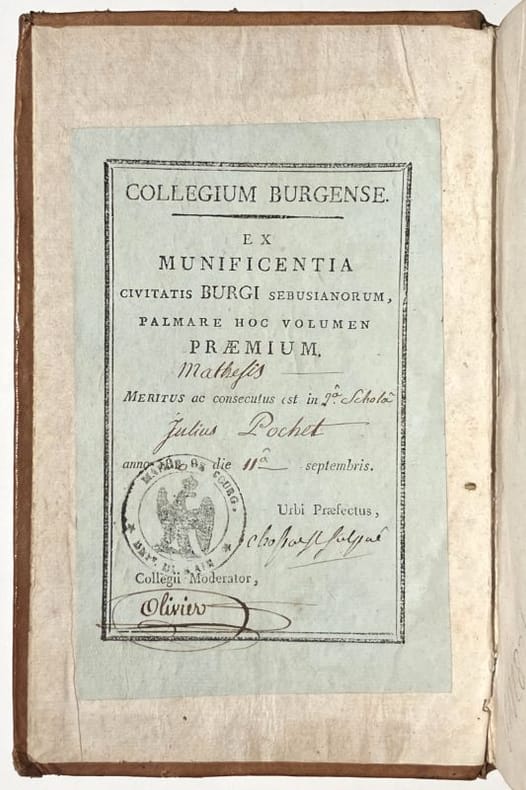 COLLEGIUM BURGENSE.
EX
MUNIFICENTIA
CIVITATIS BURGI SEBUSIANORUM,
PALMARE HOC VOLUMEN
PRÆMIUM.
Mathesis
MERITUS ac consecutus est in 2.ª Scholâ
Julius Pochet
anno die 11ª septembris.
MAIRIE DE BOURG.
Urbi Præfectus,
DEPT. DE L'AIN
Collegii Moderator,
Olivier